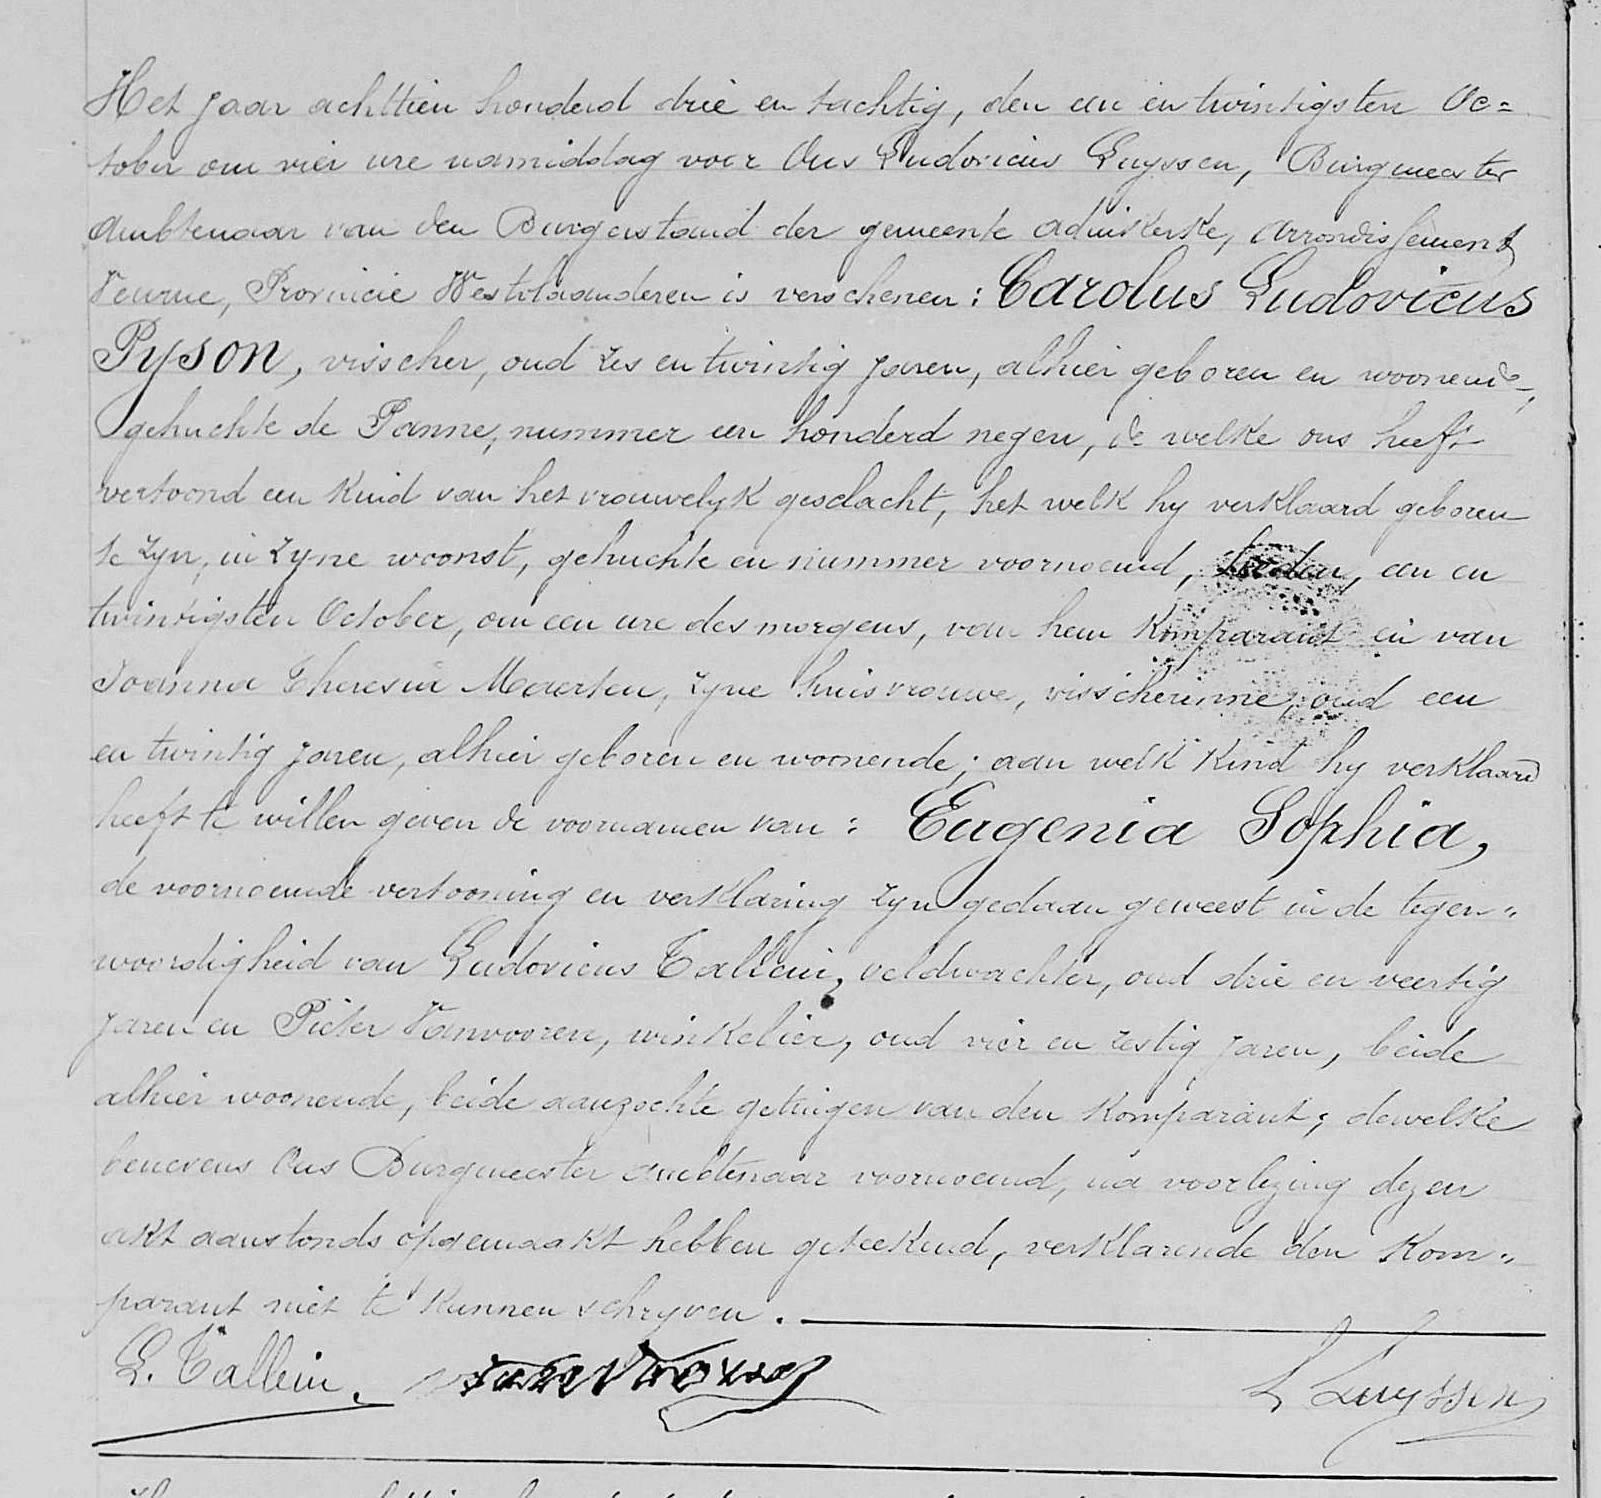 Het jaar achttien honderd drie en tachtig, den een en twintigsten Oc=
tober om vier ure namiddag voor Ons Ludovicus Luyssen, Burgmeester
ambtenaar van den Burgerstand der gemeente Adinkerke, arrondissement
Veurne, Provincie Westvlaanderen is verschenen: Carolus Ludovicus
Pyson, visscher, oud zes en twintig jaren, alhier geboren en woonende,
gehuchte de Panne, nummer een honderd negen, de welke ons heeft
vertoond een kind van het vrouwelyk geslacht, het welk hy verklaard geboren
te zyn, in zyne woonst, gehuchte en nummer voornoemd, heden, een en
twintigsten October, om een ure des morgens, van hem komparant en van
Joanna Theresia Maerten, zyne huisvrouwe, visscherinne, oud een
en twintig jaren, alhier geboren en woonende; aan welk kind hy verklaard
heeft te willen geven de voornamen van: Eugenia Sophia,
de voornoemde vertooning en verklaring zyn gedaan geweest in de tegen"
woordigheid van Ludovicus Tallein, veldwachter, oud drie en veertig
jaren en Pieter Vanvooren, winkelier, oud vier en zestig jaren, beide
alhier woonende, beide aanzochte getuigen van den komparant; dewelke
benevens Ons Burgmeester ambtenaar voornoemd, na voorlezing dezen
akt aanstonds opgemaakt hebben geteekend, verklarende den kom"
parant niet te kunnen schryven.
L. Tallein. L Luyssen